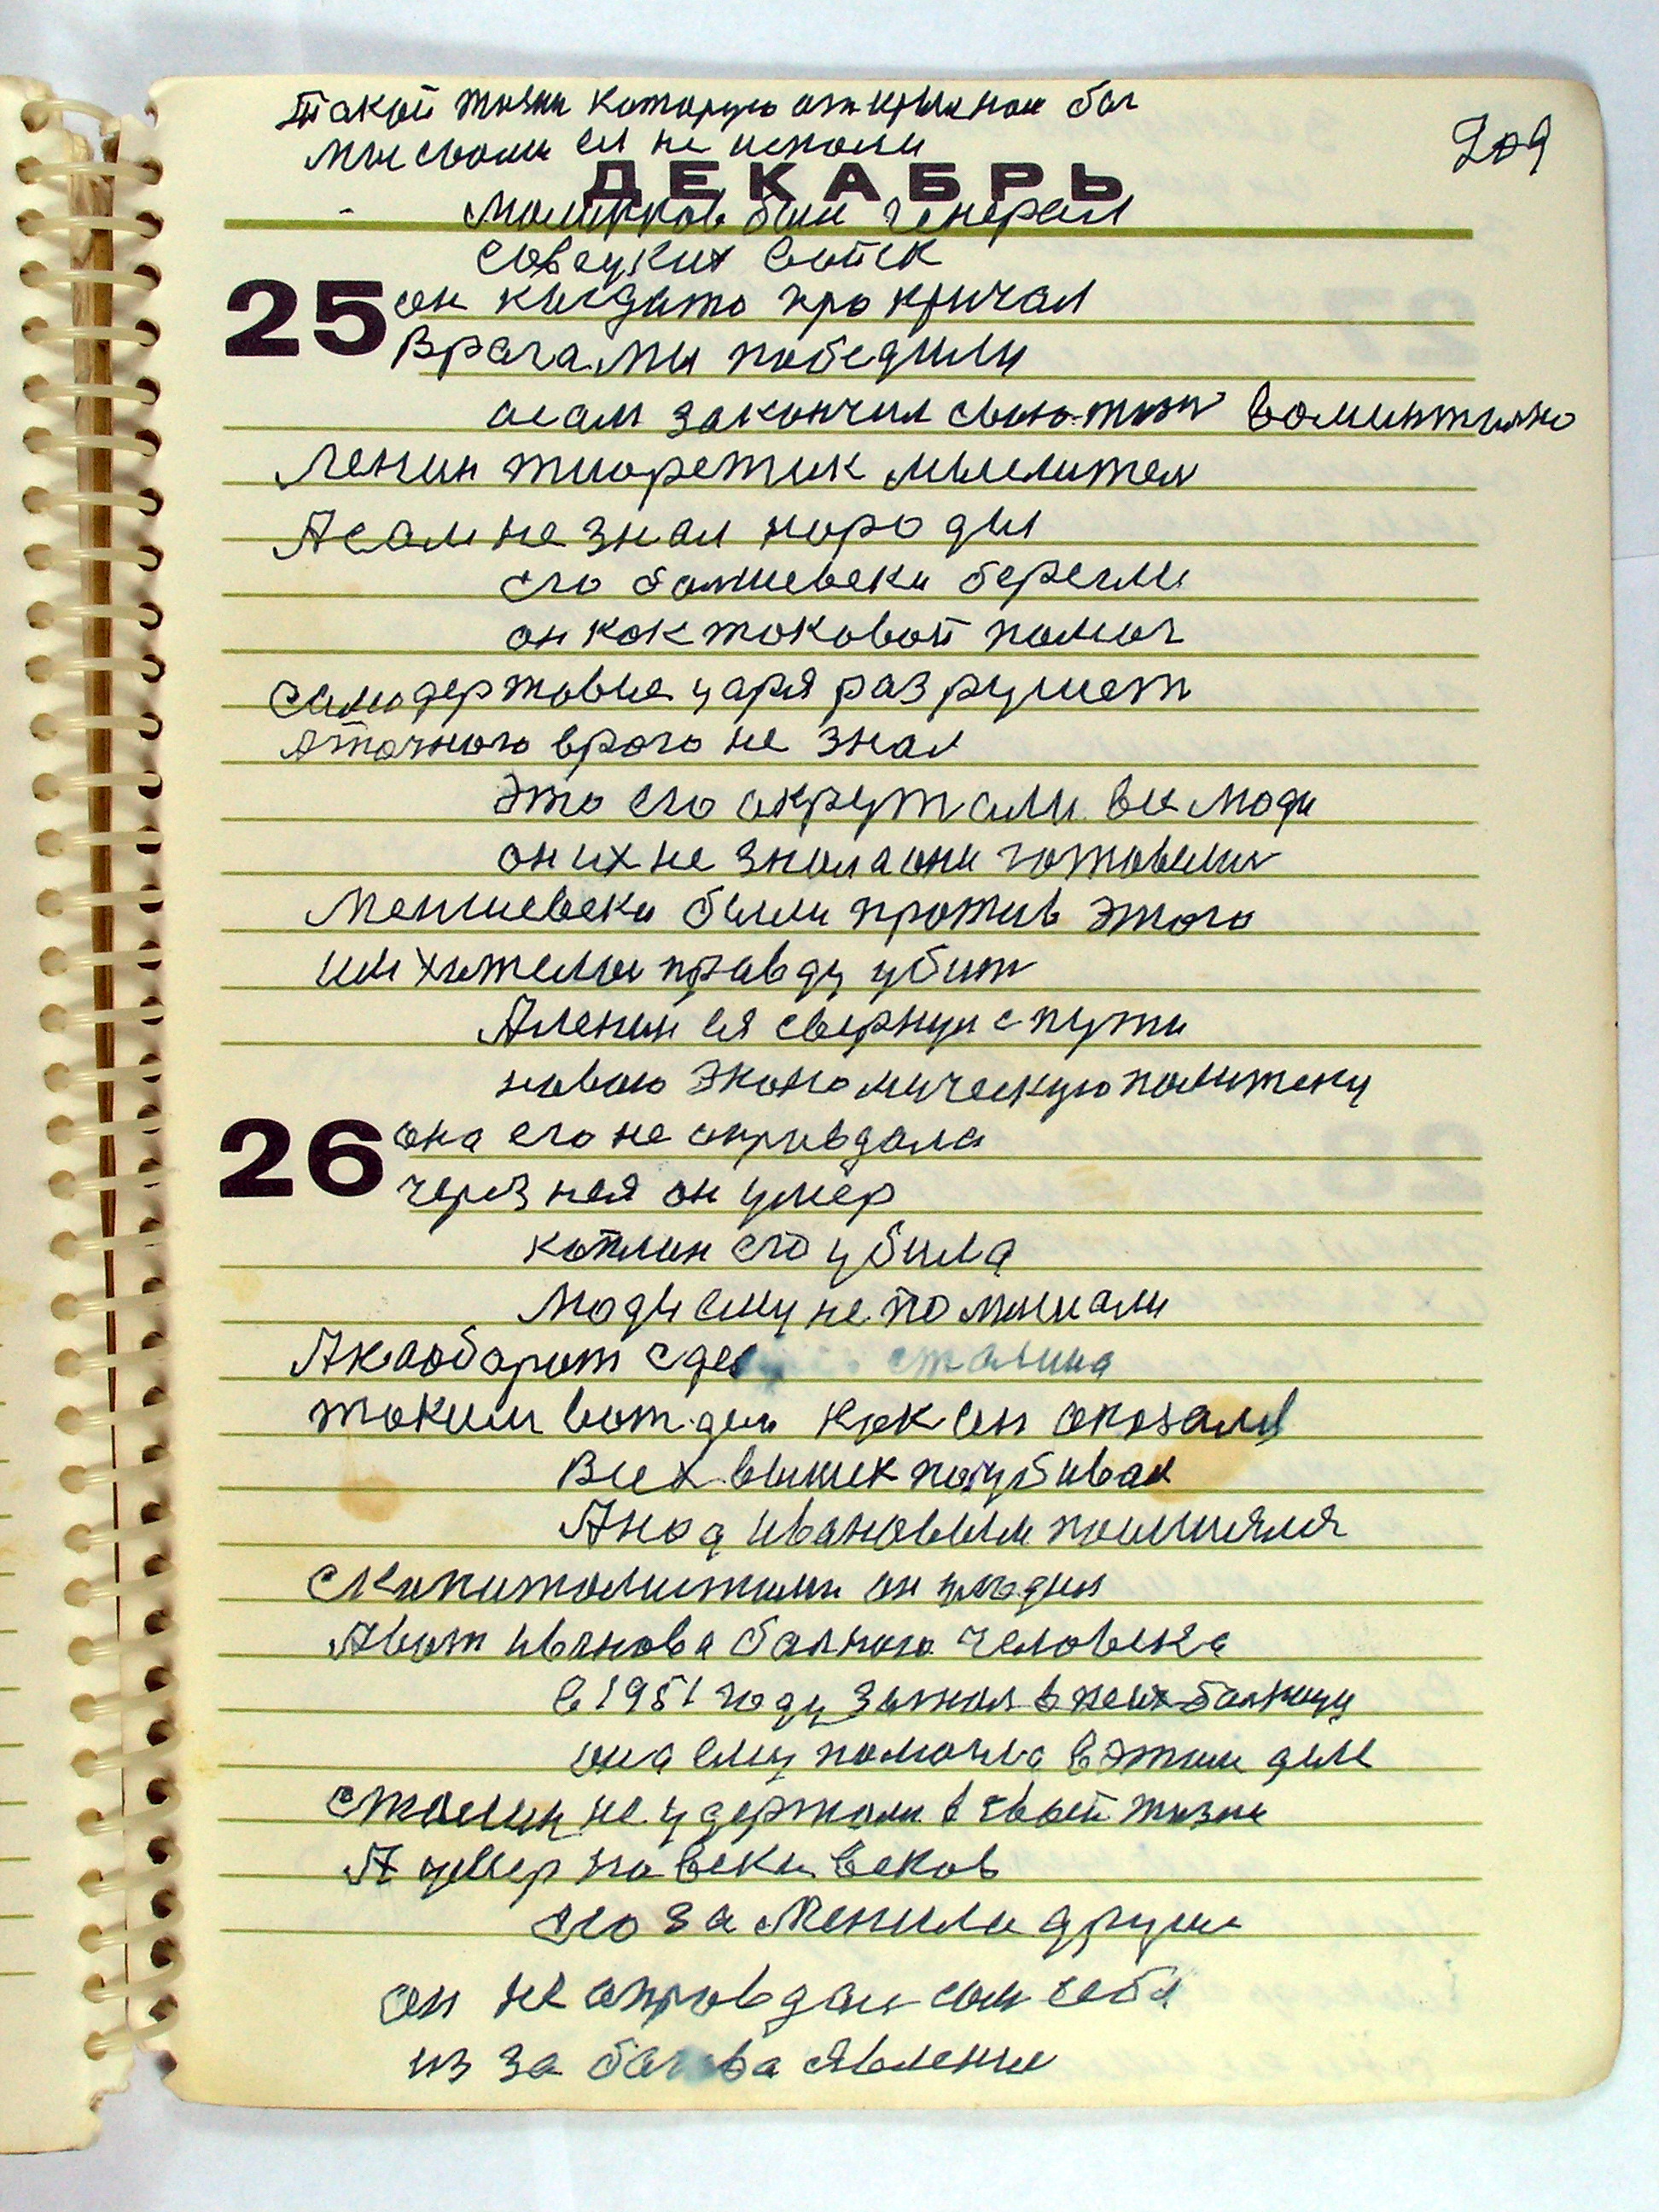 такой жизни которую открыл нам бог
209
мы своим ея не искали
ДЕКАБРЬ
был генерал
совецких войск
25
он когдато прокричал
врага мы победили
асам закончил свою жизн
Ленин тиоретик мыслител
Асам не знал породы
его большевеки берегли
он как таковой помог
самодержавие царя разрушет
аточного врага не знал
это его окружали вси люди
он их не знал а они готовилис
Меншевеки были против этого
им хотелос правду убит
Аленин ея свернул с пути
новаю экономическую политеку
26
она его не оправдала
через нея он умер
каплин его убила
люди ему не помишали
Анаоборот сталина
таким вождем как он оказалс
всех вышек поубивал
Анод ивановым посмиялся
скапиталистами он
Авот иванова балного человека
в 1951 году загнал в псих балницу
она ему помогла в этом деле
сталин не удержали в своей жизни
А умер на веки веков
его заменили другие
он не оправдал сам себя
из за явление